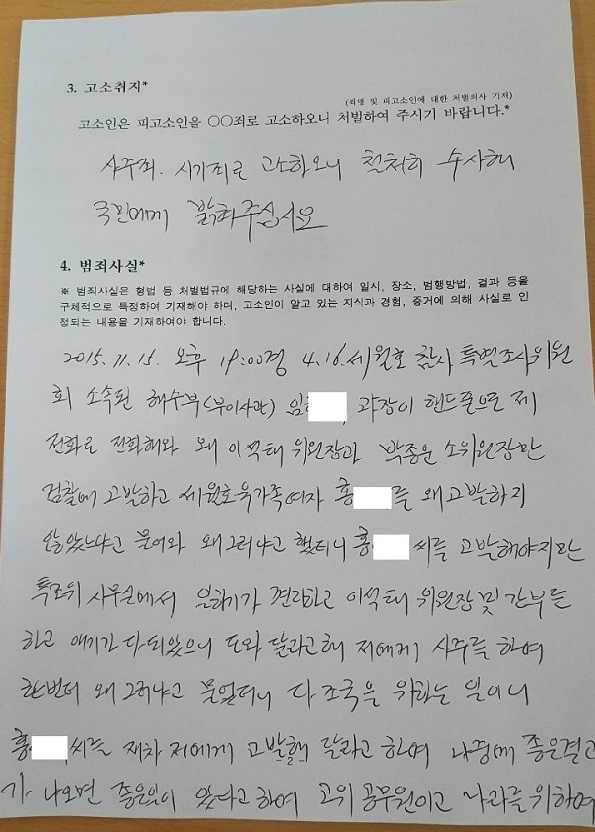 3. 고소취지*
(죄명 및 피고소인에 대한 처벌의사 기재)
고소인은 피고소인을 ○○죄로 고소하오니 처벌하여 주시기 바랍니다.*
사주죄. 사기죄로 고소하오니 철처히 수사해
국민에게 밝혀주십시요
4. 범죄사실*
※ 범죄사실은 형법 등 처벌법규에 해당하는 사실에 대하여 일시, 장소, 범행방법, 결과 등을
구체적으로 특정하여 기재해야 하며, 고소인이 알고 있는 지식과 경험, 증거에 의해 사실로 인
정되는 내용을 기재하여야 합니다.
2015. 11. 15. 오후 19:00경 4.16.세월호 참사 특별조사위원
회 소속된 해수부(부이사관) 임 과장이 핸드폰으로 제
전화로 전화해와 왜 이석태 위원장과 박종운 소위원장만
검찰에 고발하고 세월호유가족여자 홍 를 왜 고발하지
않았느냐고 물어와 왜그러냐고 했더니 홍 씨를 고발해야지만
특조위 사무실에서 일하기가 편리하고 이석태 위원장 및 간부들
하고 얘기가 다 되었으니 도와 달라고해 저에게 사주를 하여
한번더 왜 그러냐고 물었더니 다 조국을 위하는 일이니
홍 씨를 재차 저에게 고발해 달라고 하여 나중에 좋은결과
가 나오면 좋은일이 있다고 하여 고위 공무원이고 나라를 위하여